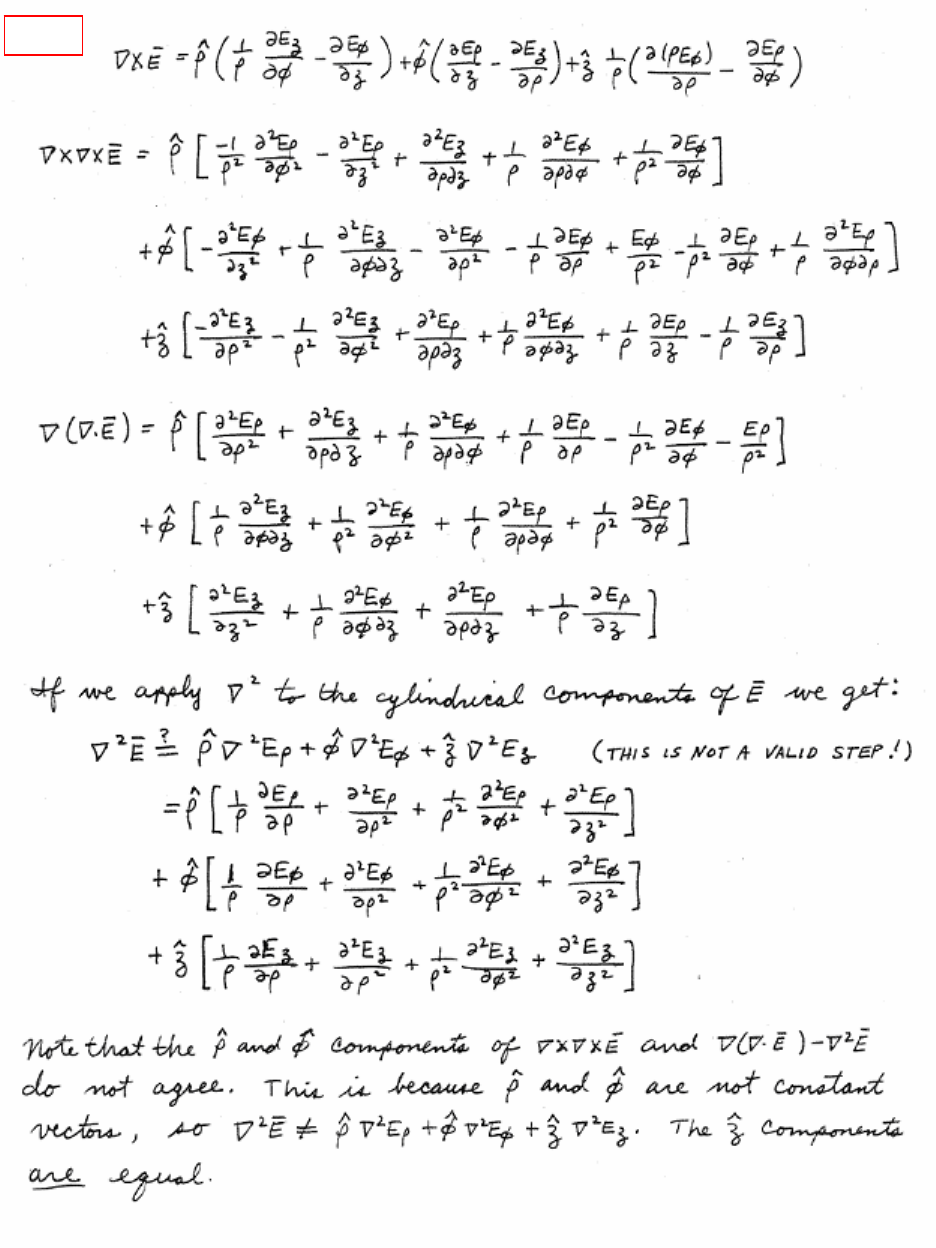 ∇×Ē = ρ̂ (1/ρ ∂Ez/∂φ - ∂Eφ/∂z) + φ̂ (∂Eρ/∂z - ∂Ez/∂ρ) + ẑ 1/ρ (∂(ρEφ)/∂ρ - ∂Eρ/∂φ)
∇×∇×Ē = ρ̂ [-1/ρ² ∂²Eρ/∂φ² - ∂²Eρ/∂z² + ∂²Ez/∂ρ∂z + 1/ρ ∂²Eφ/∂ρ∂φ + 1/ρ² ∂Eφ/∂φ]
+ φ̂ [-∂²Eφ/∂z² + 1/ρ ∂²Ez/∂φ∂z - ∂²Eφ/∂ρ² - 1/ρ ∂Eφ/∂ρ + Eφ/ρ² - 1/ρ² ∂Eρ/∂φ + 1/ρ ∂²Eρ/∂φ∂ρ]
+ ẑ [-∂²Ez/∂ρ² - 1/ρ² ∂²Ez/∂φ² + ∂²Eρ/∂ρ∂z + 1/ρ ∂²Eφ/∂φ∂z + 1/ρ ∂Eρ/∂z - 1/ρ ∂Ez/∂ρ]
∇(∇·Ē) = ρ̂ [∂²Eρ/∂ρ² + ∂²Ez/∂ρ∂z + 1/ρ ∂²Eφ/∂ρ∂φ + 1/ρ ∂Eρ/∂ρ - 1/ρ² ∂Eφ/∂φ - Eρ/ρ²]
+ φ̂ [1/ρ ∂²Ez/∂φ∂z + 1/ρ² ∂²Eφ/∂φ² + 1/ρ ∂²Eρ/∂ρ∂φ + 1/ρ² ∂Eρ/∂φ]
+ ẑ [∂²Ez/∂z² + 1/ρ ∂²Eφ/∂φ∂z + ∂²Eρ/∂ρ∂z + 1/ρ ∂Eρ/∂z]
If we apply ∇² to the cylindrical components of Ē we get:
∇²Ē ≟ ρ̂ ∇²Eρ + φ̂ ∇²Eφ + ẑ ∇²Ez (THIS IS NOT A VALID STEP!)
= ρ̂ [1/ρ ∂Eρ/∂ρ + ∂²Eρ/∂ρ² + 1/ρ² ∂²Eρ/∂φ² + ∂²Eρ/∂z²]
+ φ̂ [1/ρ ∂Eφ/∂ρ + ∂²Eφ/∂ρ² + 1/ρ² ∂²Eφ/∂φ² + ∂²Eφ/∂z²]
+ ẑ [1/ρ ∂Ez/∂ρ + ∂²Ez/∂ρ² + 1/ρ² ∂²Ez/∂φ² + ∂²Ez/∂z²]
Note that the ρ̂ and φ̂ components of ∇×∇×Ē and ∇(∇·Ē)-∇²Ē
do not agree. This is because ρ̂ and φ̂ are not constant
vectors, so ∇²Ē ≠ ρ̂ ∇²Eρ + φ̂ ∇²Eφ + ẑ ∇²Ez. The ẑ components
are equal.